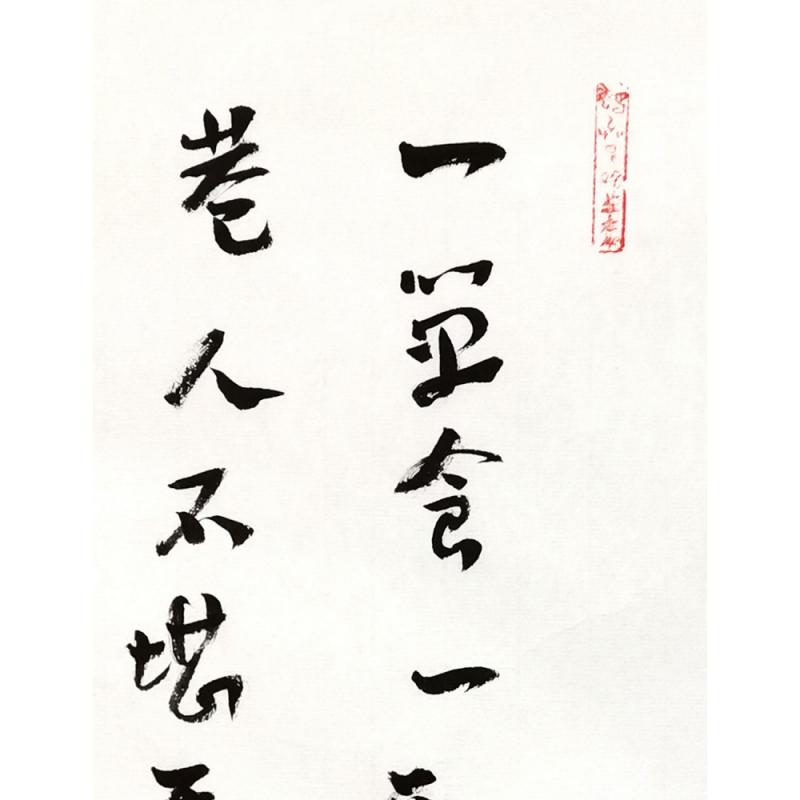 一箪食一
巷人不堪